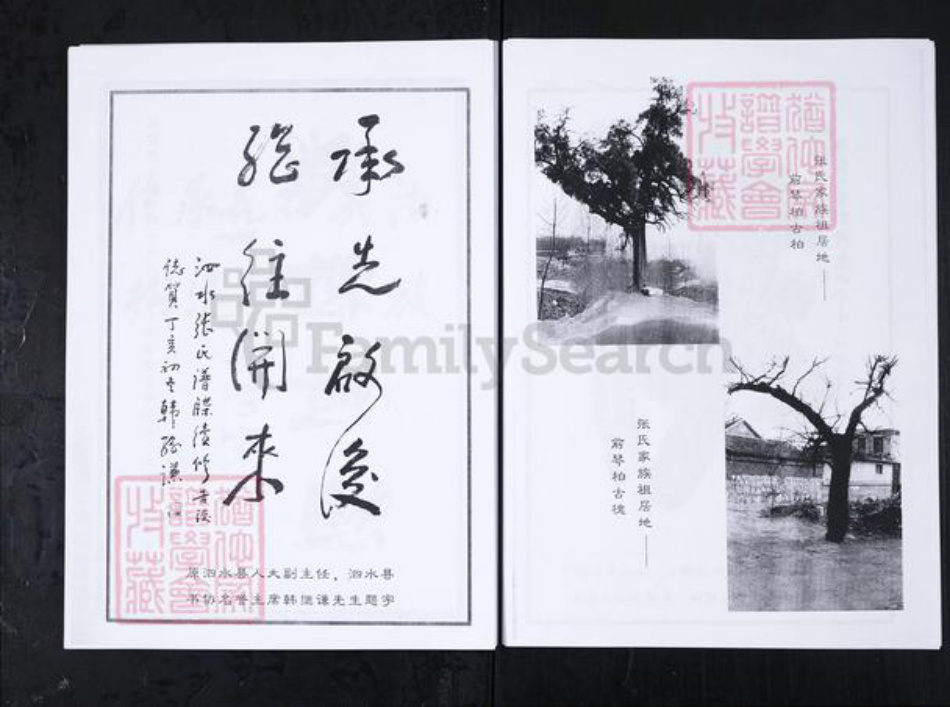 承先啟後
繼往開來
泗水張氏譜牒續修告竣
誌賀丁亥初冬韓繼謙
原泗水县人大副主任、泗水县
书协名誉主席韩继谦先生题字
张氏家族祖居地——
前琴柏古柏
张氏家族祖居地——
前琴柏古槐
譜學會
收藏
FamilySearch